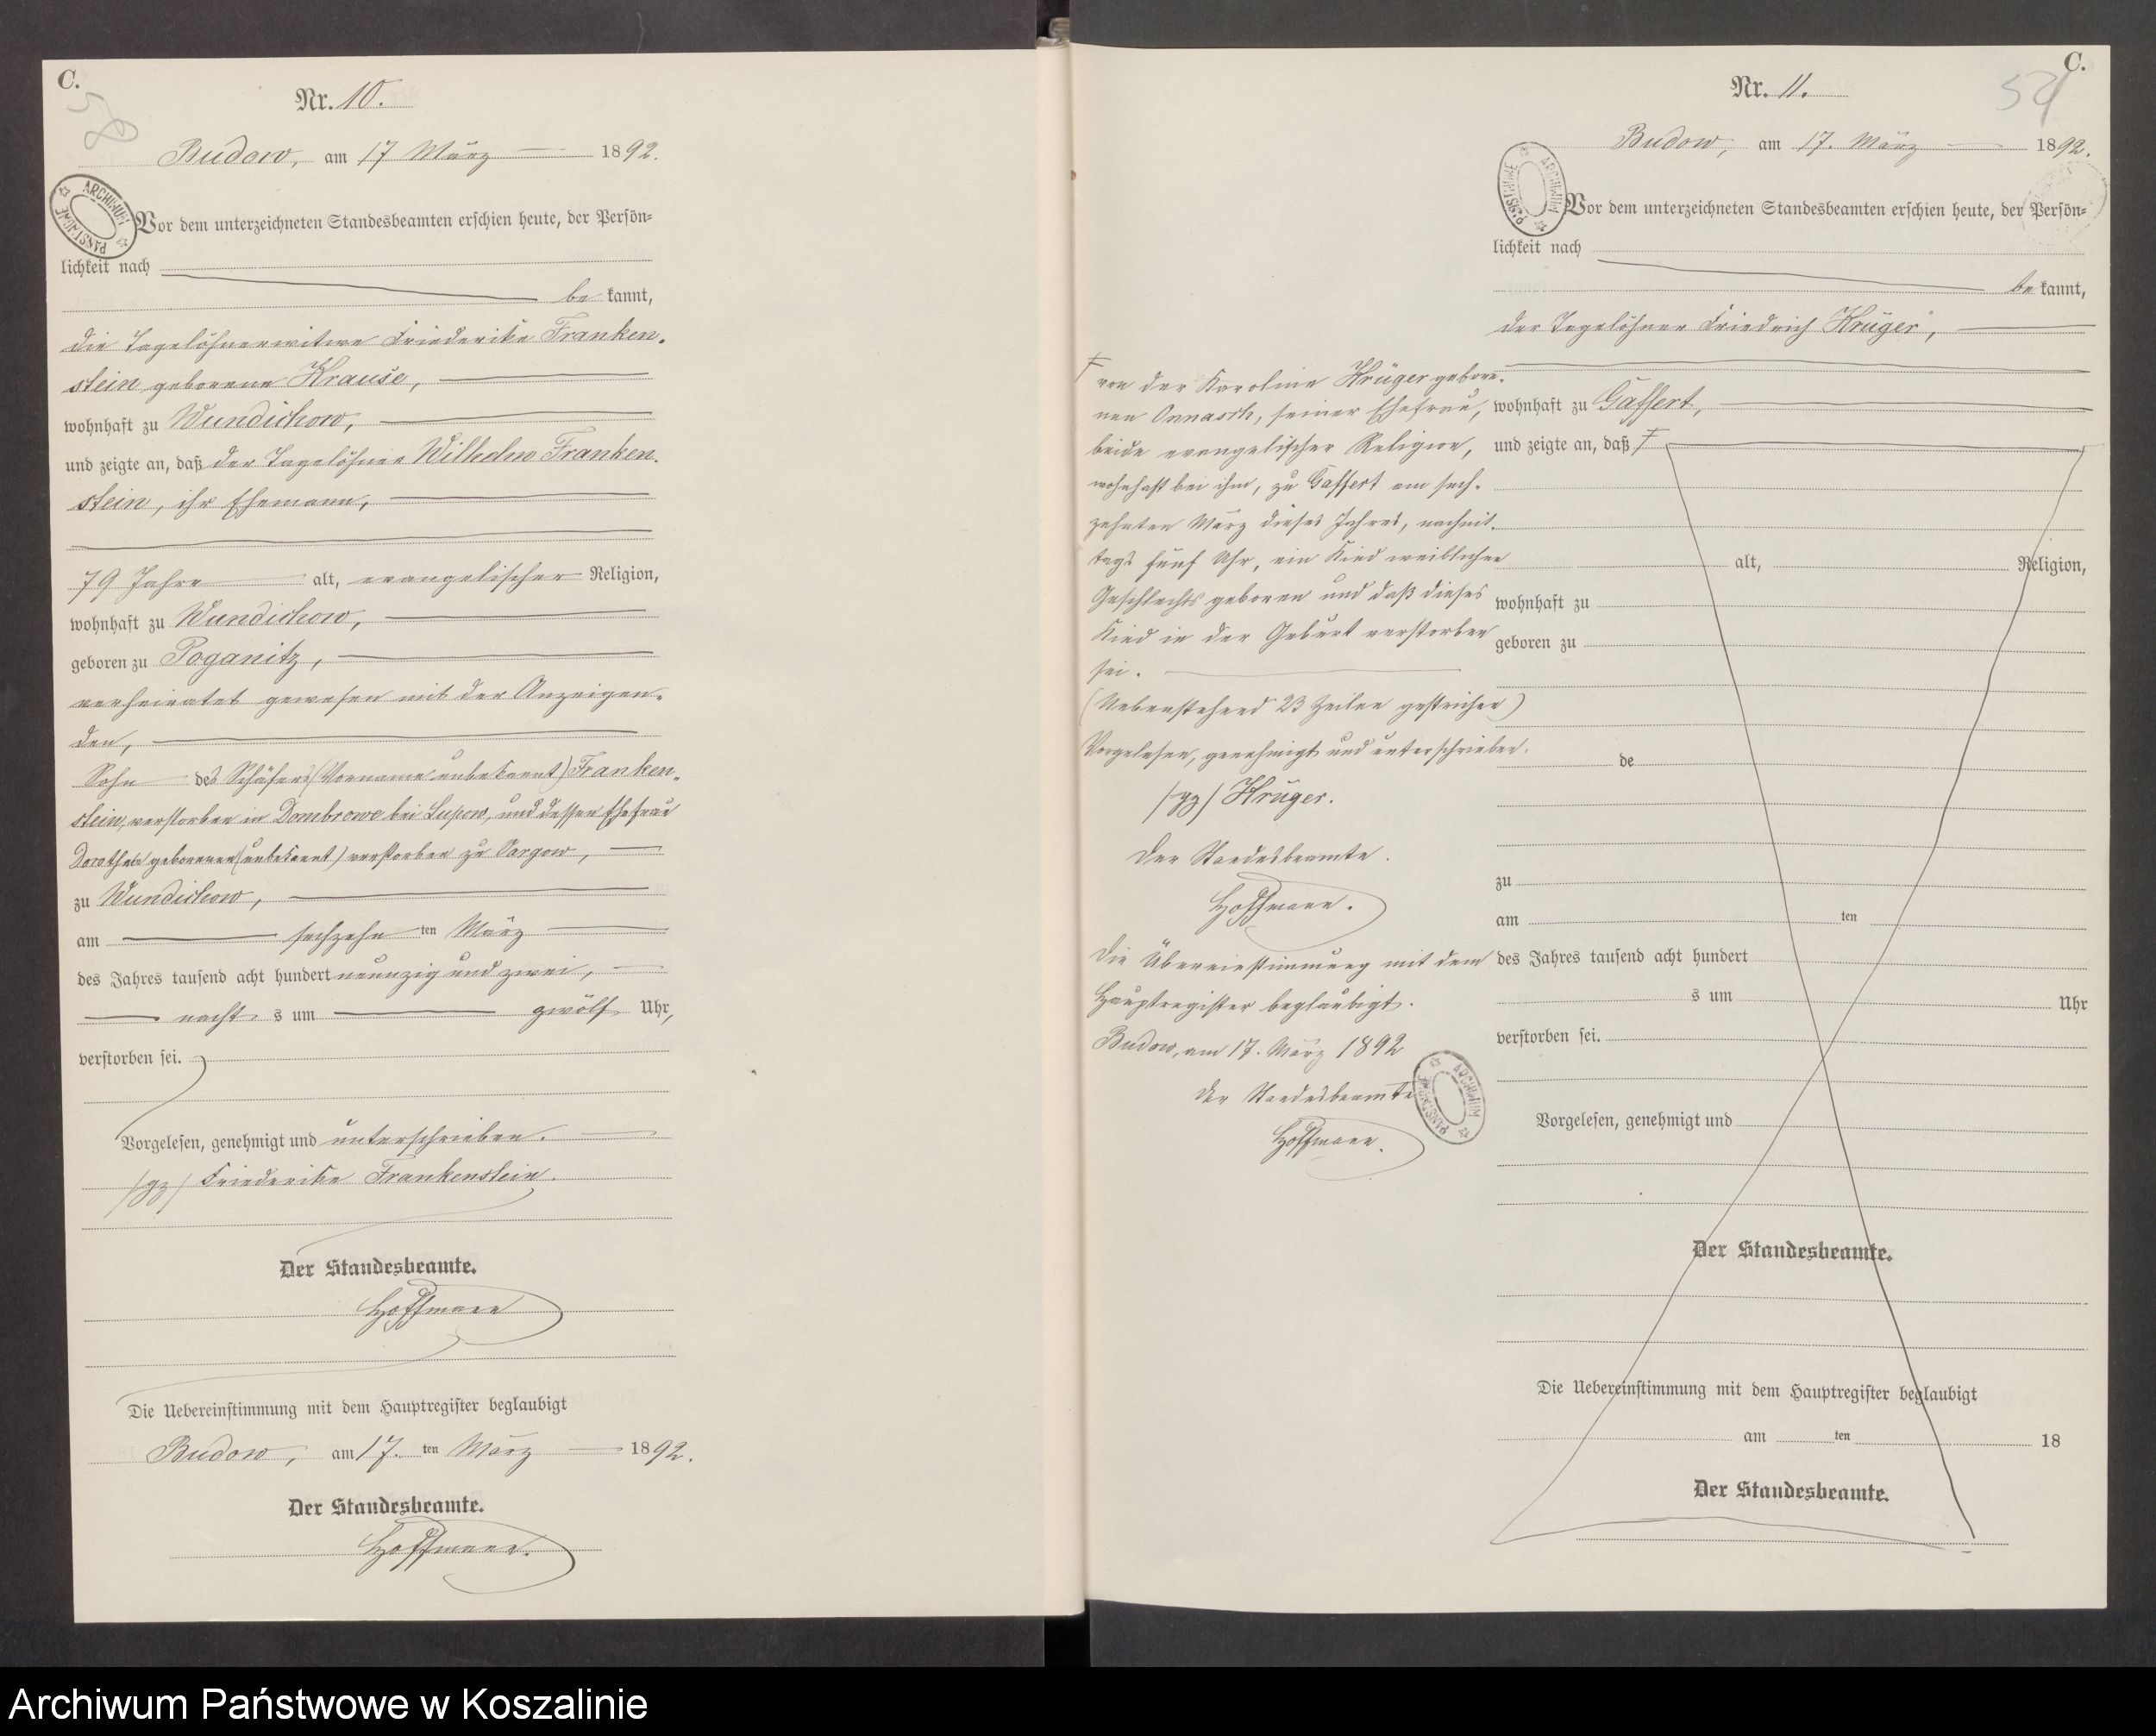 C.
Nr. 10.
Budow, am 17 März 1892.
ARCHIWUM PAŃSTWOWE
Vor dem unterzeichneten Standesbeamten erschien heute, der Persön=
lichkeit nach
be kannt,
die Tagelöhnerwitwe Friederike Franken-
stein geborene Krause,
wohnhaft zu Wundichow,
und zeigte an, daß der Tagelöhner Wilhelm Franken-
stein, ihr Ehemann,
79 Jahre alt, evangelischer Religion,
wohnhaft zu Wundichow,
geboren zu Poganitz,
verheiratet gewesen mit der Anzeigen-
den,
Sohn des Schäfers (Vorname unbekannt) Franken-
stein, verstorben in Dombrowe bei Lupow, und dessen Ehefrau
Dorothea geborenen (unbekannt) verstorben zu Vargow,
zu Wundichow,
am sechzehn ten März
des Jahres tausend acht hundert neunzig und zwei,
nacht s um zwölf Uhr,
verstorben sei.
Vorgelesen, genehmigt und unterschrieben.
/gz/ Friederike Frankenstein.
Der Standesbeamte.
Hoffmann
Die Uebereinstimmung mit dem Hauptregister beglaubigt
Budow, am 17. ten März 1892.
Der Standesbeamte.
Hoffmann.
C.
Nr. 11.
Budow, am 17. März 1892.
ARCHIWUM PAŃSTWOWE
Vor dem unterzeichneten Standesbeamten erschien heute, der Persön=
lichkeit nach
be kannt,
der Tagelöhner Friedrich Krüger,
wohnhaft zu Gaffert,
und zeigte an, daß
von der Karoline Krüger gebore-
nen Onnasch, seiner Ehefrau,
beide evangelischer Religion,
wohnhaft bei ihm, zu Gaffert am sech-
zehnten März dieses Jahres, nachmit-
tags fünf Uhr, ein Kind weiblichen
Geschlechts geboren und daß dieses
Kind in der Geburt verstorben
sei.
(Nebenstehend 23 Zeilen gestrichen)
Vorgelesen, genehmigt und unterschrieben.
/gz/ Krüger.
Der Standesbeamte.
Hoffmann.
Die Übereinstimmung mit dem
Hauptregister beglaubigt.
Budow, am 17. März 1892
Der Standesbeamte
Hoffmann.
ARCHIWUM PAŃSTWOWE
alt, Religion,
wohnhaft zu
geboren zu
de
zu
am ten
des Jahres tausend acht hundert
s um Uhr
verstorben sei.
Vorgelesen, genehmigt und
Der Standesbeamte.
Die Uebereinstimmung mit dem Hauptregister beglaubigt
am ten 18
Der Standesbeamte.
Archiwum Państwowe w Koszalinie